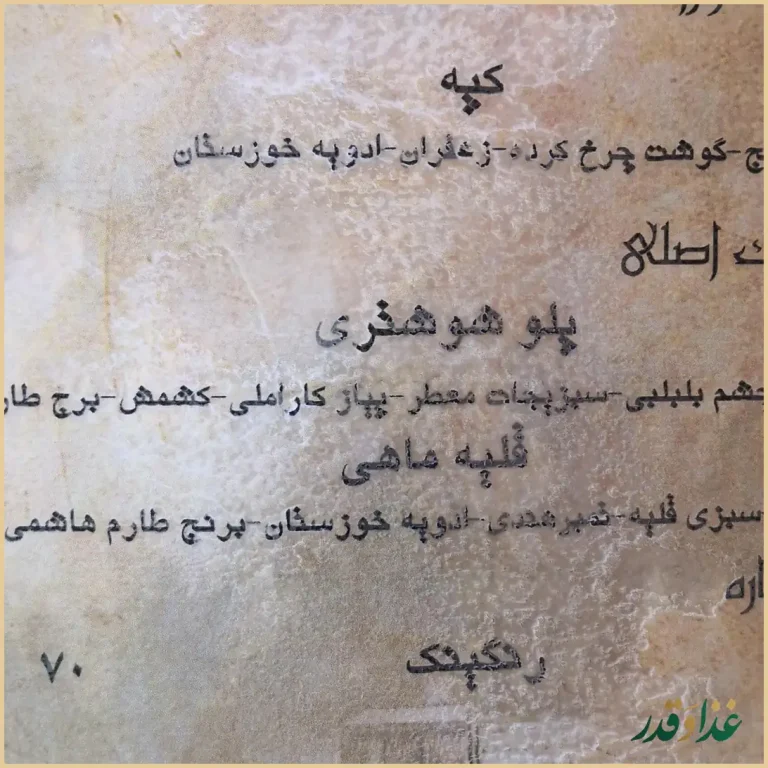 کپه
ج-گوشت چرخ کرده-زعفران-ادویه خوزستان
ت اصلی
پلو شوشتری
چشم بلبلی-سبزیجات معطر-پیاز کاراملی-کشمش-برج طار
قلیه ماهی
-سبزی قلیه-تمبرهندی-ادویه خوزستان-برنج طارم هاشمی
اره
رنگینک
۷۰
غذا و قدر